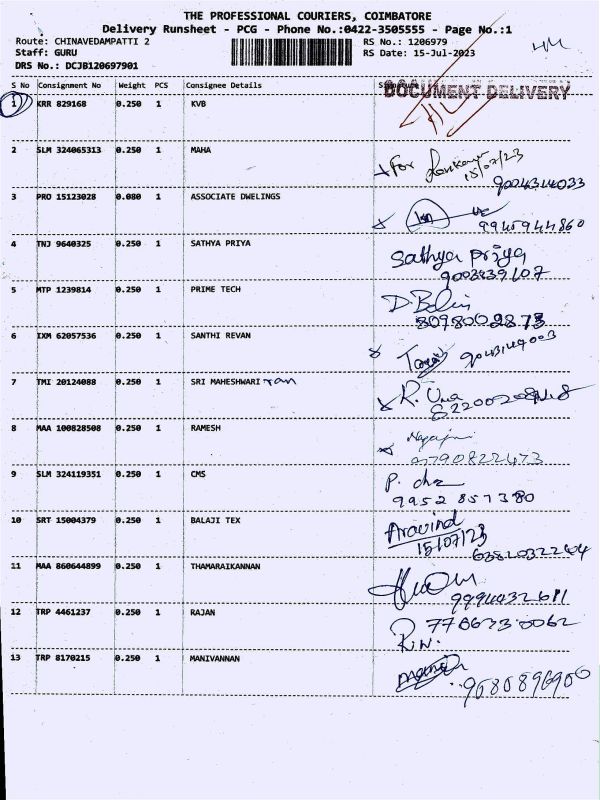 THE PROFESSIONAL COURIERS, COIMBATORE
Delivery Runsheet - PCG - Phone No.:0422-3505555 - Page No.:1
Route: CHINAVEDAMPATTI 2 RS No.: 1206979
Staff: GURU RS Date: 15-Jul-2023
DRS No.: DCJB120697901
S No Consignment No Weight PCS Consignee Details Signature
DOCUMENT DELIVERY
1 KRR 829168 0.250 1 KVB
2 SLM 324065313 0.250 1 MAHA
For 15/07/23
9004314033
3 PRO 15123028 0.080 1 ASSOCIATE DWELINGS
9945944860
4 TNJ 9640325 0.250 1 SATHYA PRIYA
Sathya Priya
9003839107
5 MTP 1239814 0.250 1 PRIME TECH
8098002873
6 IXM 62057536 0.250 1 SANTHI REVAN
9043149003
7 TMI 20124088 0.250 1 SRI MAHESHWARI
R. Uma
8 MAA 100828508 0.250 1 RAMESH
9790822473
9 SLM 324119351 0.250 1 CMS
9952 857380
10 SRT 15004379 0.250 1 BALAJI TEX
Aravind
15/07/23
11 MAA 860644899 0.250 1 THAMARAIKANNAN
9994032611
12 TRP 4461237 0.250 1 RAJAN
R.N.
13 TRP 8170215 0.250 1 MANIVANNAN